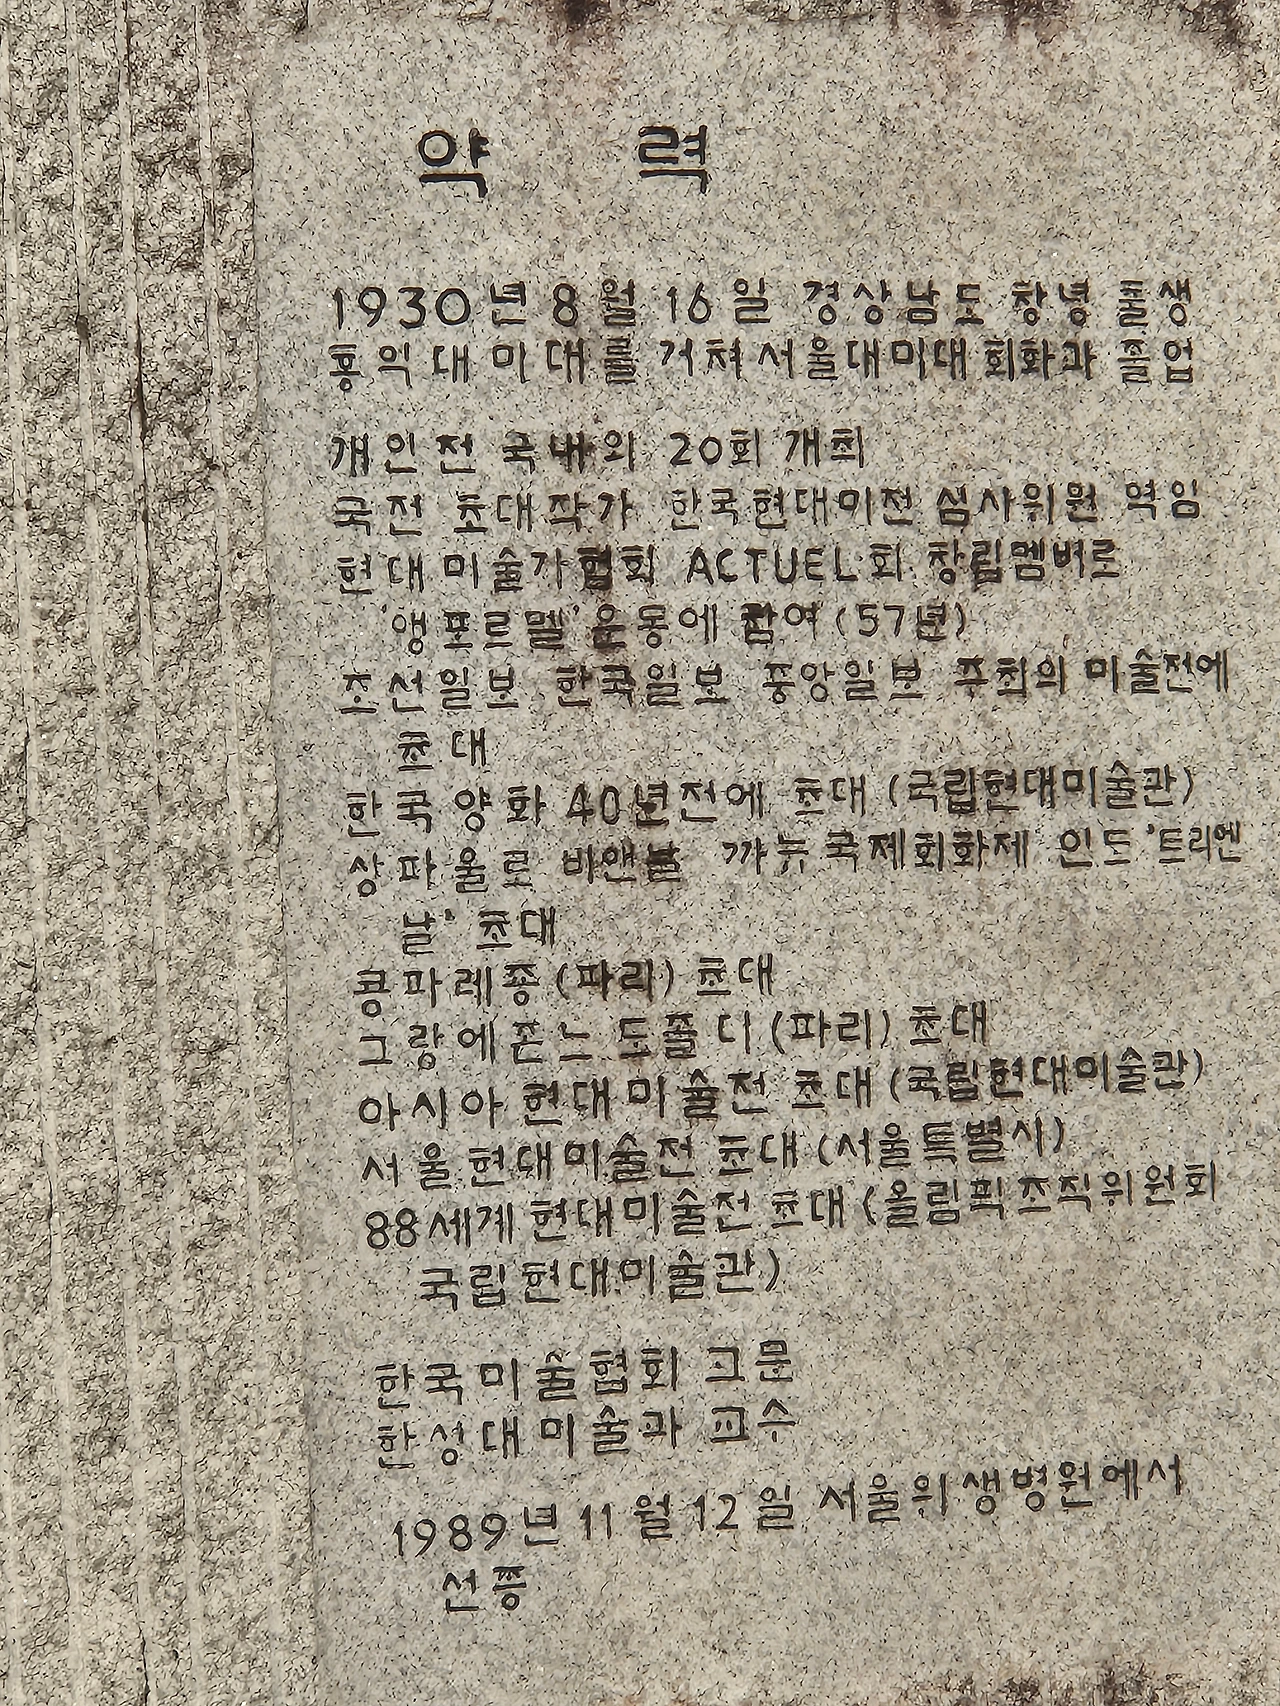 약 력
1930년 8월 16일 경상남도 창녕 출생
홍익대 미대를 거쳐 서울대미대 회화과 졸업
개인전 국내외 20회 개최
국전 초대작가 한국현대미전 심사위원 역임
현대미술가협회 ACTUEL회 창립멤버로
'앵포르멜'운동에 참여(57년)
조선일보 한국일보 중앙일보 주최의 미술전에
초대
한국양화 40년전에 초대(국립현대미술관)
상파울로 비앤날 까뉴국제회화제 인드'트리엔
날' 초대
콩파레종(파리) 초대
그랑에죤느 도쥴디(파리) 초대
아시아 현대미술전 초대(국립현대미술관)
서울현대미술전 초대(서울특별시)
88세계현대미술전 초대(올림픽조직위원회
국립현대미술관)
한국미술협회 고문
한성대미술과 교수
1989년 11월 12일 서울위생병원에서
선종